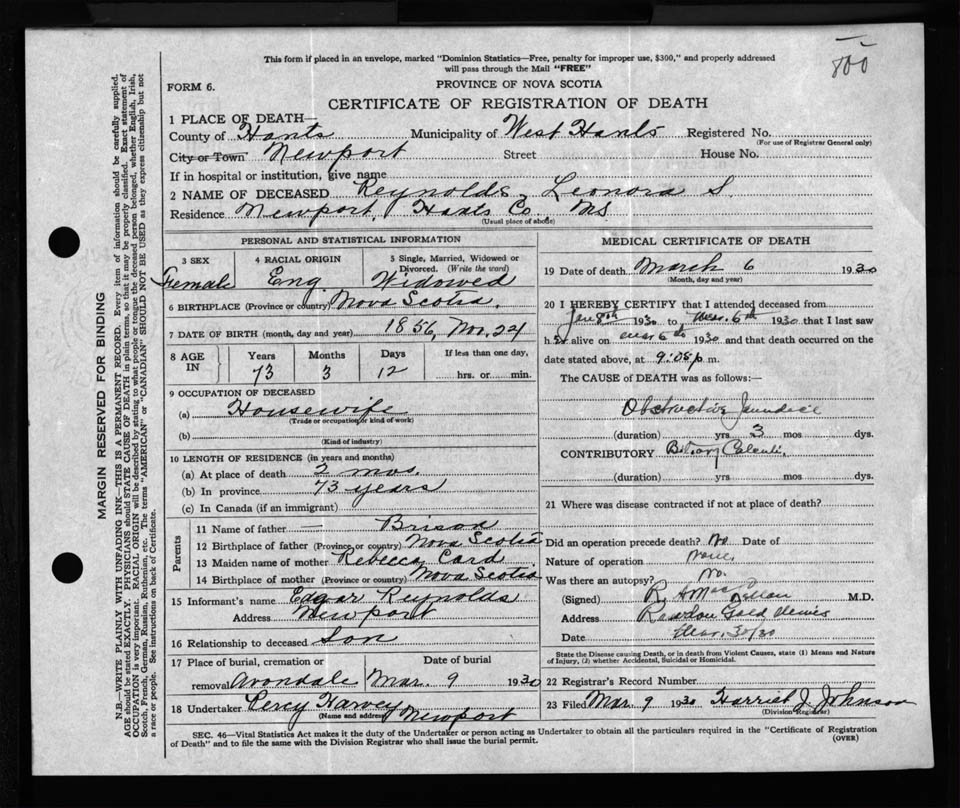 800
This form if placed in an envelope, marked "Dominion Statistics—Free, penalty for improper use, $300," and properly addressed
will pass through the Mail "FREE"
FORM 6.
PROVINCE OF NOVA SCOTIA
CERTIFICATE OF REGISTRATION OF DEATH
1 PLACE OF DEATH—
County of Hants Municipality of West Hants Registered No.
(For use of Registrar General only)
City or Town Newport Street House No.
If in hospital or institution, give name
2 NAME OF DECEASED Reynolds, Leonora S
Residence Newport, Hants Co NS
(Usual place of abode)
PERSONAL AND STATISTICAL INFORMATION
3 SEX 4 RACIAL ORIGIN 5 Single, Married, Widowed or
Divorced. (Write the word)
Female Eng Widowed
6 BIRTHPLACE (Province or country) Nova Scotia.
7 DATE OF BIRTH (month, day and year) 1856, Nov. 24
8 AGE IN Years Months Days If less than one day,
73 3 12 hrs. or min.
9 OCCUPATION OF DECEASED
(a) Housewife
(Trade or occupation or kind of work)
(b)
(Kind of industry)
10 LENGTH OF RESIDENCE (in years and months)
(a) At place of death 2 mos.
(b) In province 73 years
(c) In Canada (if an immigrant)
Parents
11 Name of father — Brison
12 Birthplace of father (Province or country) Nova Scotia
13 Maiden name of mother Rebecca Card
14 Birthplace of mother (Province or country) Nova Scotia
15 Informant's name Edgar Reynolds
Address Newport
16 Relationship to deceased Son
17 Place of burial, cremation or Date of burial
removal Avondale Mar 9 1930
18 Undertaker Percy Harvey Newport
(Name and address)
MEDICAL CERTIFICATE OF DEATH
19 Date of death March 6 1930
(Month, day and year)
20 I HEREBY CERTIFY that I attended deceased from
Jan 8th 1930 to Mar. 6th 1930 that I last saw
h er alive on Mar 6th 1930 and that death occurred on the
date stated above, at 9:05 p m.
The CAUSE of DEATH was as follows:—
Obstructive Jaundice
(duration) yrs 3 mos dys.
CONTRIBUTORY Biliary Calculi.
(duration) yrs mos dys.
21 Where was disease contracted if not at place of death?
Did an operation precede death? No Date of
Nature of operation none.
Was there an autopsy? no.
(Signed) M.D.
Address Rawdon Gold Mines
Date
State the Disease causing Death, or in death from Violent Causes, state (1) Means and Nature
of Injury, (2) whether Accidental, Suicidal or Homicidal.
22 Registrar's Record Number
23 Filed Mar 9 1930 Harriet J Johnson
(Division Registrar)
SEC. 46—Vital Statistics Act makes it the duty of the Undertaker or person acting as Undertaker to obtain all the particulars required in the "Certificate of Registration
of Death" and to file the same with the Division Registrar who shall issue the burial permit.
(OVER)
MARGIN RESERVED FOR BINDING
N.B.—WRITE PLAINLY WITH UNFADING INK—THIS IS A PERMANENT RECORD. Every item of information should be carefully supplied.
AGE should be stated EXACTLY. PHYSICIANS should STATE CAUSE OF DEATH in plain terms, so that it may be properly classified. Exact statement of
OCCUPATION is very important. RACIAL ORIGIN will be described by stating to what people or tongue the deceased person belonged, whether English, Irish,
Scotch, French, German, Russian, Ruthenian, etc. The terms "AMERICAN" or "CANADIAN" SHOULD NOT BE USED as they express citizenship but not
a race or people. See instructions on back of Certificate.